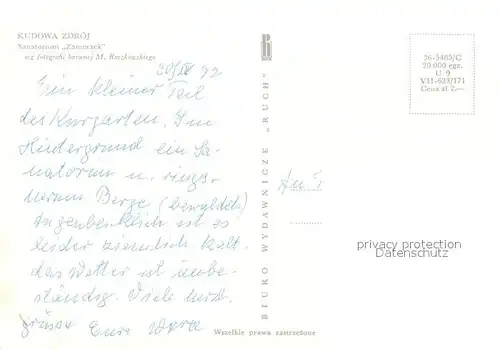 KUDOWA ZDRÓJ
Sanatorium „Zameczek"
wg fotografii barwnej M. Raczkowskiego
Ein kleiner Teil
des Kurgarten. Im
Hintergrund ein Sa-
natorium u. rings-
herum Berge (bewaldet)
Augenblicklich ist es
leider ziemlich kalt.
das Wetter ist unbe-
ständig. Viele herzl.
grüsse Eure
BIURO WYDAWNICZE „RUCH"
56-5485/C
20 000 egz.
U 9
V11-623/171
Cena zł 2.—
privacy protection
Datenschutz
Wszelkie prawa zastrzeżone